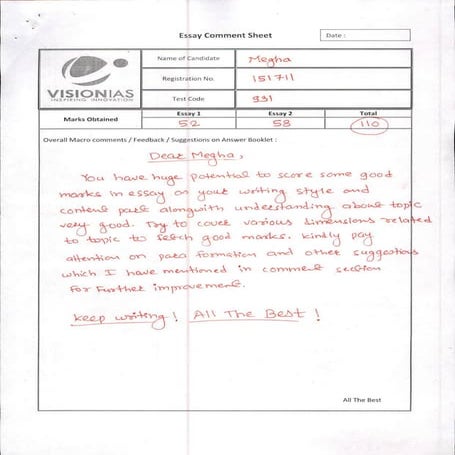 Essay Comment Sheet
Date :
VISIONIAS
INSPIRING INNOVATION
Name of Candidate Megha
Registration No. 151711
Test Code 831
Marks Obtained
Essay 1 Essay 2 Total
52 58 110
Overall Macro comments / Feedback / Suggestions on Answer Booklet :
Dear Megha,
You have huge potential to score some good
marks in essay as your writing style and
content part alongwith understanding about topic
very good. Try to cover various dimensions related
to topic to fetch good marks. kindly pay
attention on para formation and other suggestions
which I have mentioned in comment section
for further improvement.
keep writing! All The Best!
All The Best